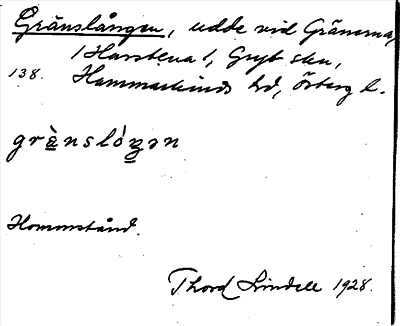 Gränslången, udde vid Gränsma,
1 Harstena 1, Gryt skn,
138. Hammarkinds hd, Österg l.
gränslóŋən
Thord Lindell 1928.